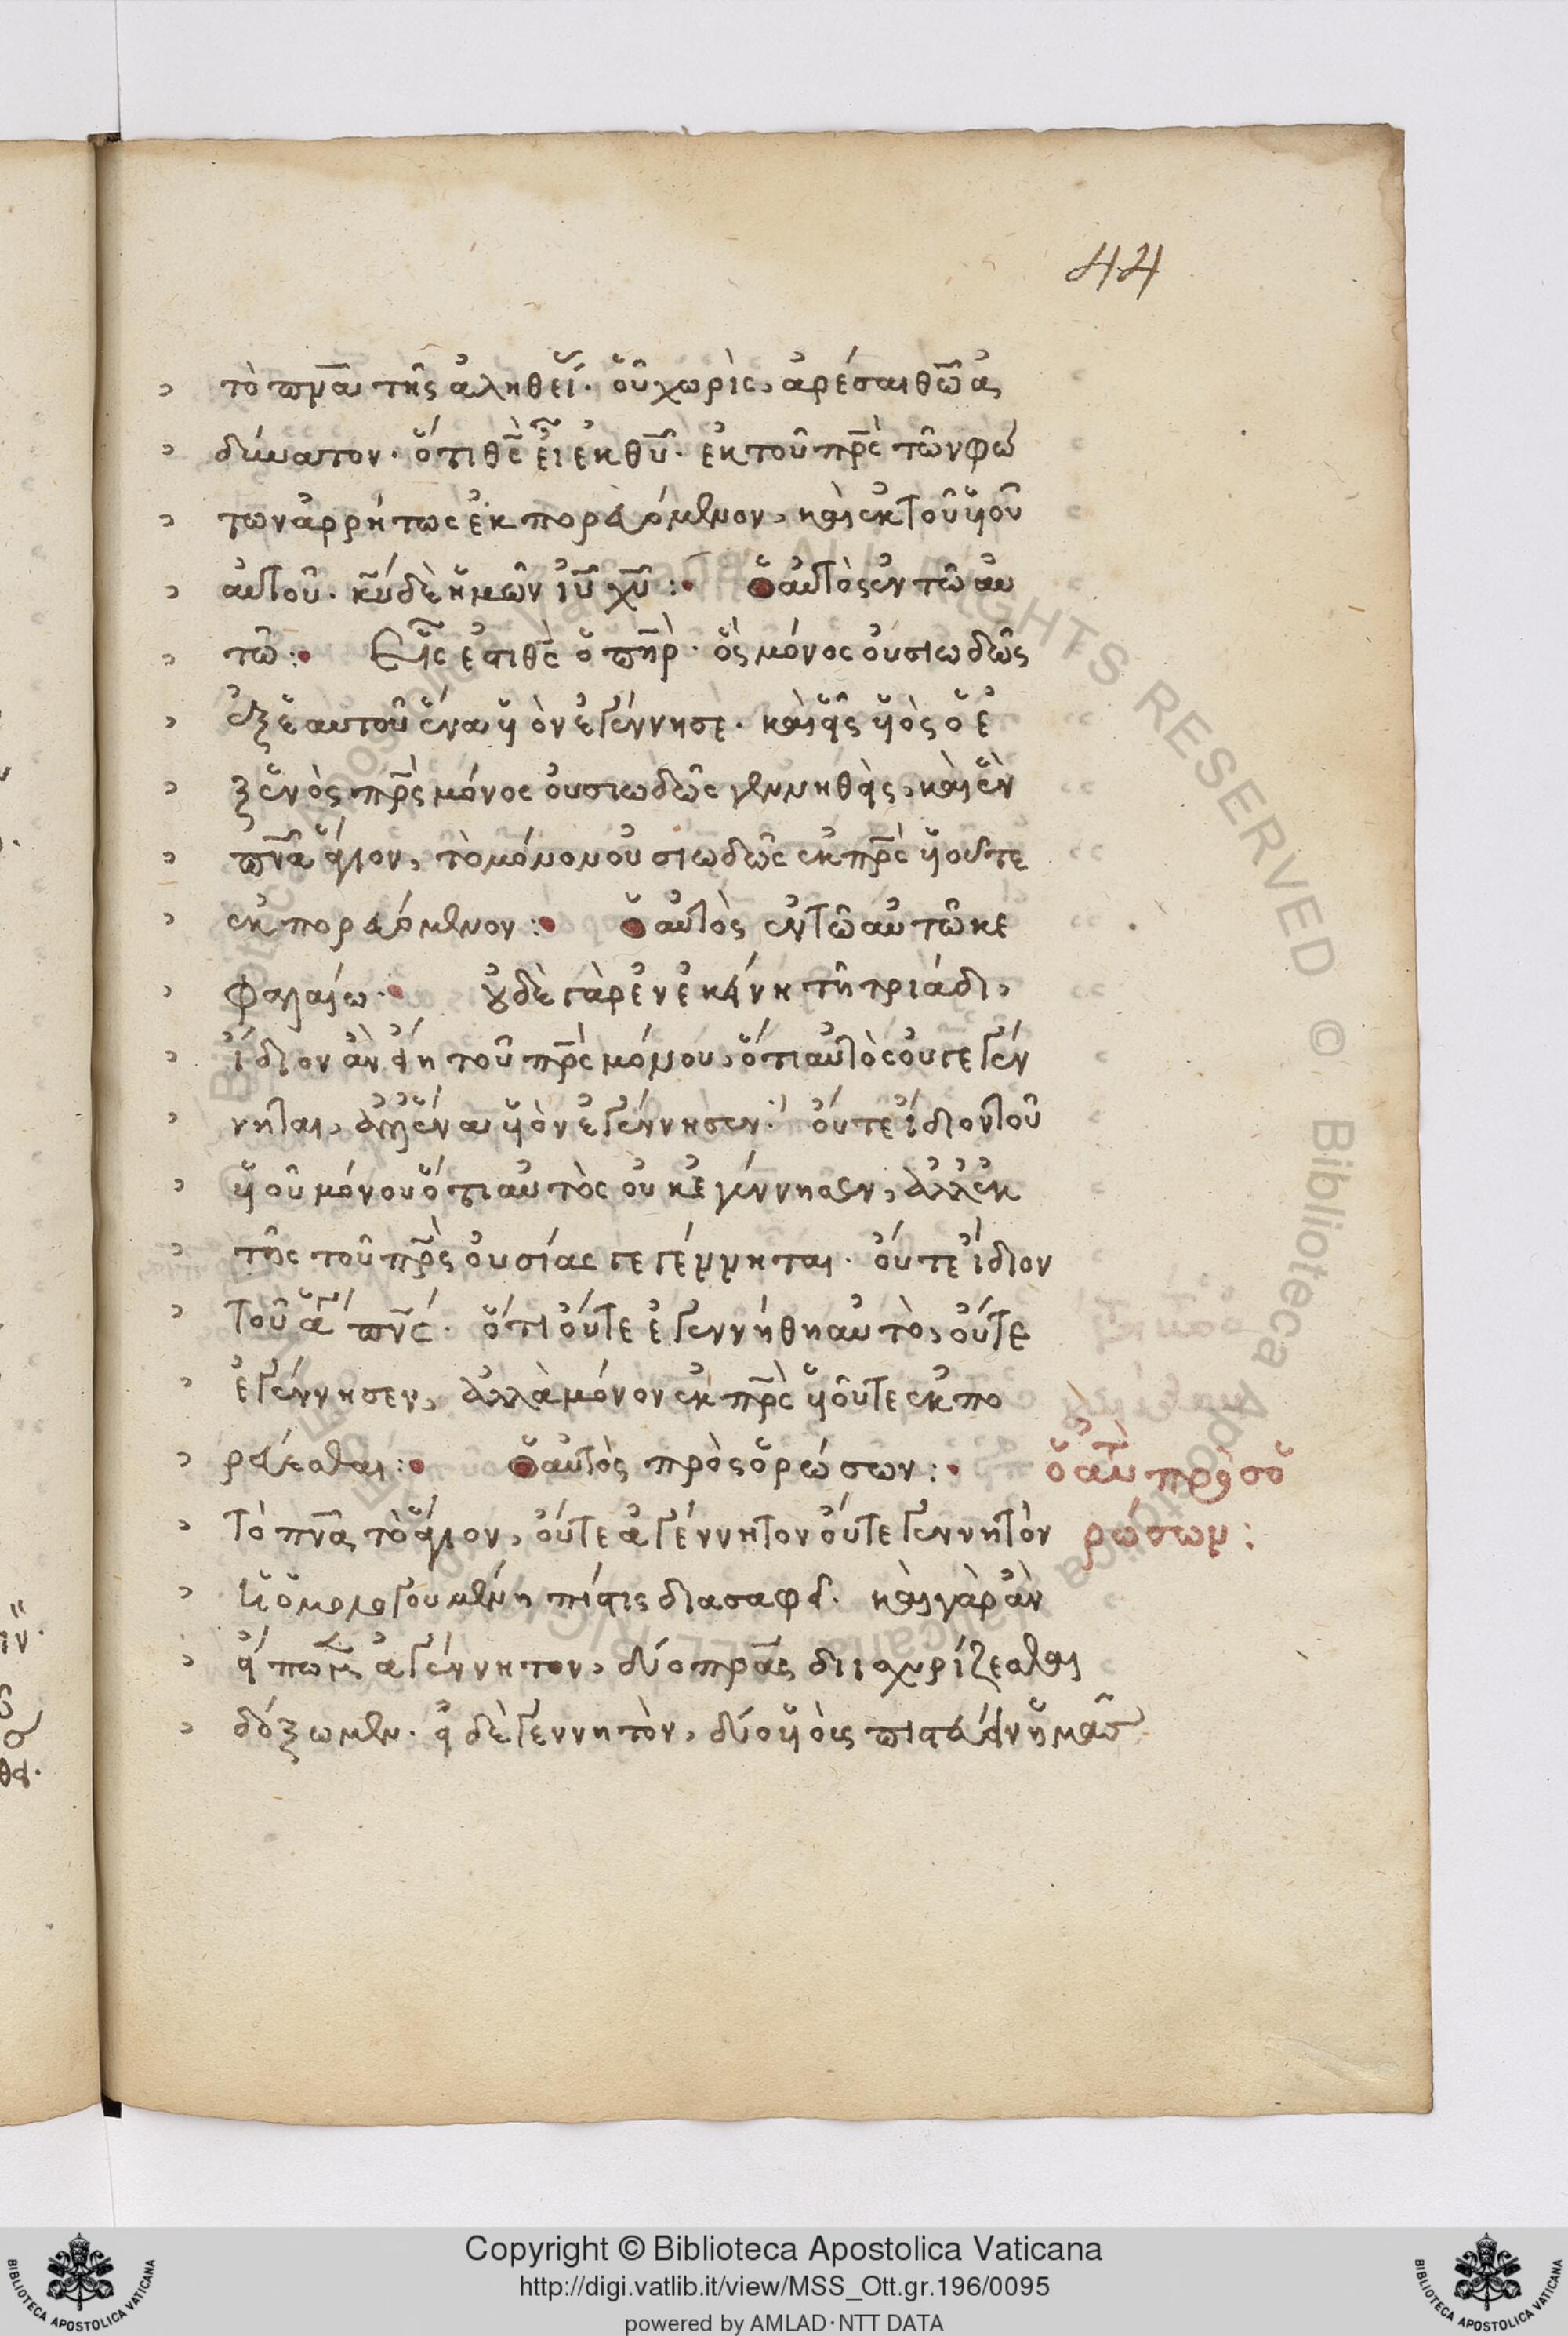 44
τὸ πν̅α τῆς ἀληθεί. οὗ χωρὶς, ἀρέσαι θω̅ ἀ
δύνατον. ὅτι θς̅ εἶ ἐκ θυ̅. ἐκ τοῦ πρς̅ τῶν φώ
των ἀρρήτως ἐκπορευόμενον, καὶ ἐκ τοῦ υἱοῦ
αὐτοῦ. κυ̅ δὲ ἡμῶν ιυ̅ χυ̅ :· ὁ αὐτὸς ἐν τῶ αυ
τῶ :· Εἷς ἐστι θς̅ ὁ πηρ̅. ὃς μόνος οὐσιωδῶς
ἐξ ἑαυτοῦ ἕνα υἱὸν ἐγέννησε. καὶ εἷς υἱὸς ὁ ἐ
ξ ἑνὸς πρς̅ μόνος οὐσιωδῶς γεννηθεὶς, καὶ ἓν
πν̅α ἅγιον, τὸ μόνον οὐσιωδῶς ἐκ πρς̅ υἱοῦ τε
ἐκπορευόμενον :· ὁ αὐτὸς ἐν τῶ αὐτῶ κε
φαλαίω· οὐδὲ γὰρ ἐν ἐκείνη τῆ τριάδι,
ἴδιον ἂν εἴη τοῦ πρς̅ μόνου, ὅτι αὐτὸς οὐ γεγέν
νηται, ἀλλ' ἕνα υἱὸν ἐγέννησεν· οὔτε ἴδιον τοῦ
υἱοῦ μόνου ὅτι αὐτὸς οὐκ ἐγέννησεν, ἀλλ' ἐκ
τῆς τοῦ πρς̅ οὐσίας γεγέννηται. οὔτε ἴδιον
τοῦ ἁγ πνς̅. ὅτι οὔτε ἐγεννήθη αὐτὸ, οὔτε
ἐγέννησεν, ἀλλὰ μόνον ἐκ πρς̅ υἱοῦ τε ἐκπο
ρεύεσθαι :· ὁ αὐτὸς πρὸς ὀρώσιον :·
ὁ αυτ πρὸς ὀ
ρώσιον :
τὸ πν̅α τὸ ἅγιον, οὔτε ἀγέννητον οὔτε γεννητὸν
ἡ ὁμολογουμένη πίστις διασαφεῖ. καὶ γὰρ ἂν
εἴπωμεν ἀγέννητον, δύο πρας̅ διισχυρίζεσθαι
δόξωμεν. εἰ δὲ γεννητὸν, δύο υἱοὺς πιστεύειν ἡμᾶσ
Copyright © Biblioteca Apostolica Vaticana
http://digi.vatlib.it/view/MSS_Ott.gr.196/0095
powered by AMLAD·NTT DATA